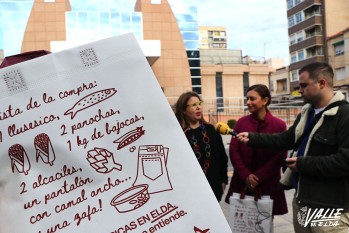 ista de la compra:
llusesico,
2 panochas,
1 kg de bajocas,
2 alcaciles,
un pantalón
con canal ancho...
una zafa!
ICAS EN ELDA.
entiende.
Valle
DE ELDA